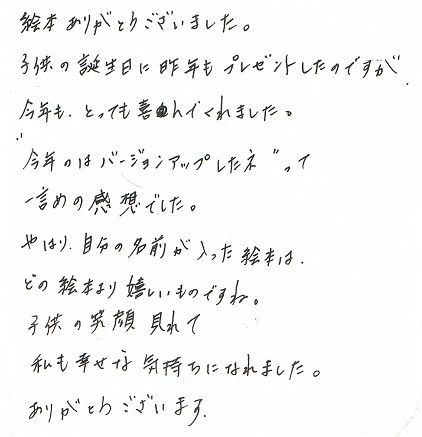 絵本ありがとうございました。
子供の誕生日に昨年もプレゼントしたのですが、
今年も、とっても喜んでくれました。
"今年のはバージョンアップしたネ"って
一言めの感想でした。
やはり、自分の名前が入った絵本は、
どの絵本より嬉しいものですね。
子供の笑顔見れて
私も幸せな気持ちになれました。
ありがとうございます。